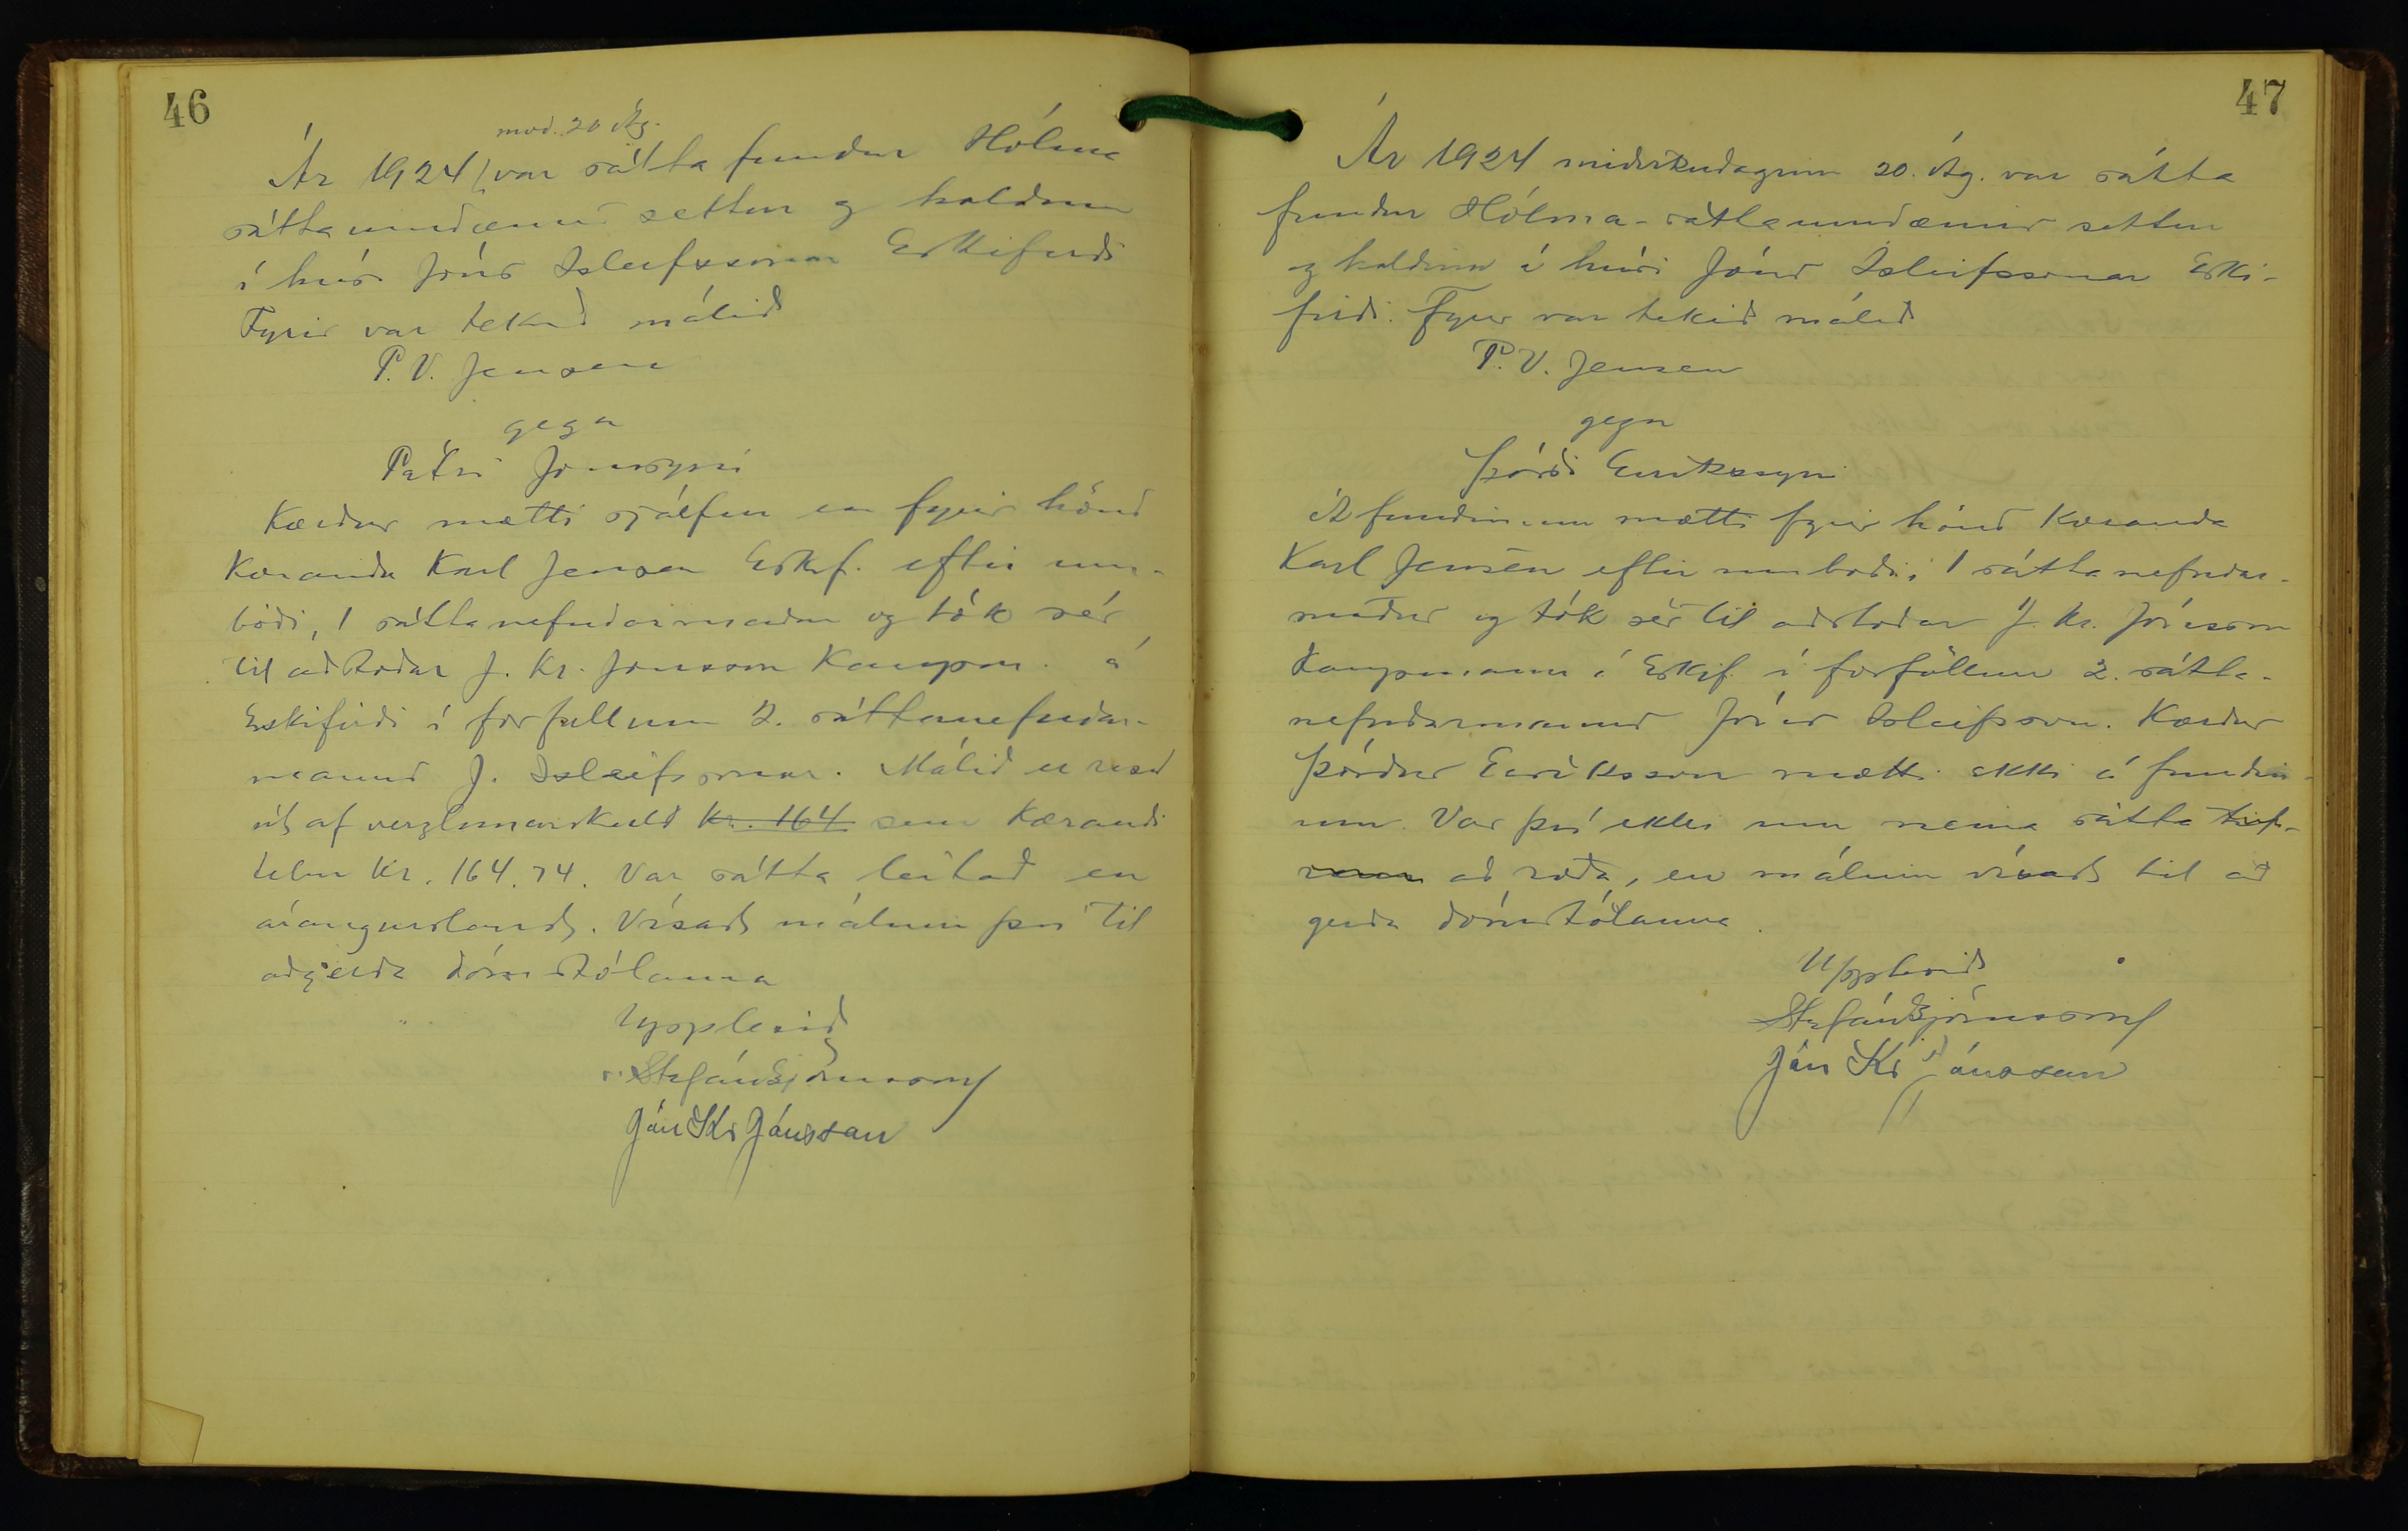 46
mvd. 20 Ág.
Ár 1924 var sátta fundur Hólma
sáttaumdæmis settur og haldinn
í húsi Jóns Isleifssonar Eskifirði
Fyrir var tekið málið
P. V. Jensen
gegn
Pétri Jónssyni
Kærður mætti sjálfur en fyrir hönd
Kæranda Karl Jensen Eskif. eftir um-
boði, 1 sáttanefndarmaður og tók sér
til aðstoðar J. Kr. Jonsson Kaupm. á
Eskifirði í forföllum 2. sáttanefndar-
manns J. Isleifssonar. Málið er risið
út af verzlunarskuld Kr. 164 sem Kærandi
telur Kr. 164.74. Var sátta leitað en
árangurslaust. Vísast málinu því til
aðgerða dómstólanna
Upplesið
Stefán Björnsson
Jón Kr Jónsson
47
Ár 1924 miðvikudaginn 20. Ág. var sátta
fundur Hólma-sáttaumdæmis settur
og haldinn í húsi Jóns Isleifssonar Eski-
firði. Fyrir var tekið málið
P. V. Jensen
gegn
Þórði Eirikssyni
Á fundinum mætti fyrir hönd Kæranda
Karl Jensen eftir umboði, 1 sáttanefndar-
maður og tók sér til aðstoðar J. Kr. Jónsson
Kaupmann á Eskif. í forföllum 2. sátta-
nefndarmanns Jóns Isleifsson. Kærður
Þórður Eiríksson mætti ekki á fundin-
um. Var því ekki um neina sátta
að ræða, en málinu vísast til að
gerða dómstólanna.
Upplesið
Stefán Björnsson
Jón Kr Jónsson